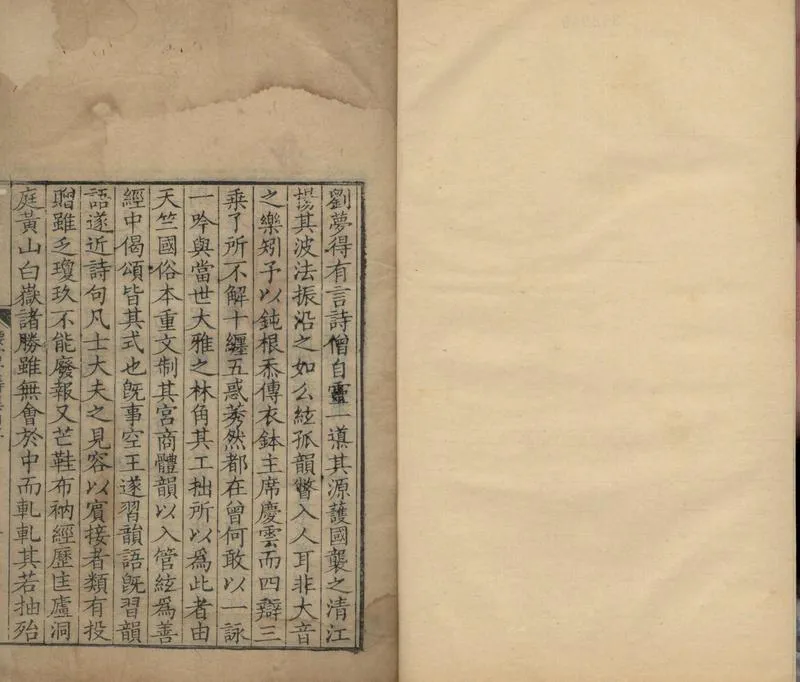 劉夢得有言詩僧自靈一導其源護國襲之清江
揚其波法振沿之如么絃孤韻瞥入人耳非大音
之樂矧予以鈍根忝傳衣鉢主席慶雲而四辯三
乘了所不解十纏五惑莠然都在曾何敢以一詠
一吟與當世大雅之林角其工拙所以爲此者由
天竺國俗本重文制其宮商體韻以入管絃爲善
經中偈頌皆其式也旣事空王遂習韻語旣習韻
語遂近詩句凡士大夫之見容以賓接者類有投
贈雖乏瓊玖不能廢報又芒鞋布衲經歷匡廬洞
庭黃山白嶽諸勝雖無會於中而軋軋其若抽殆